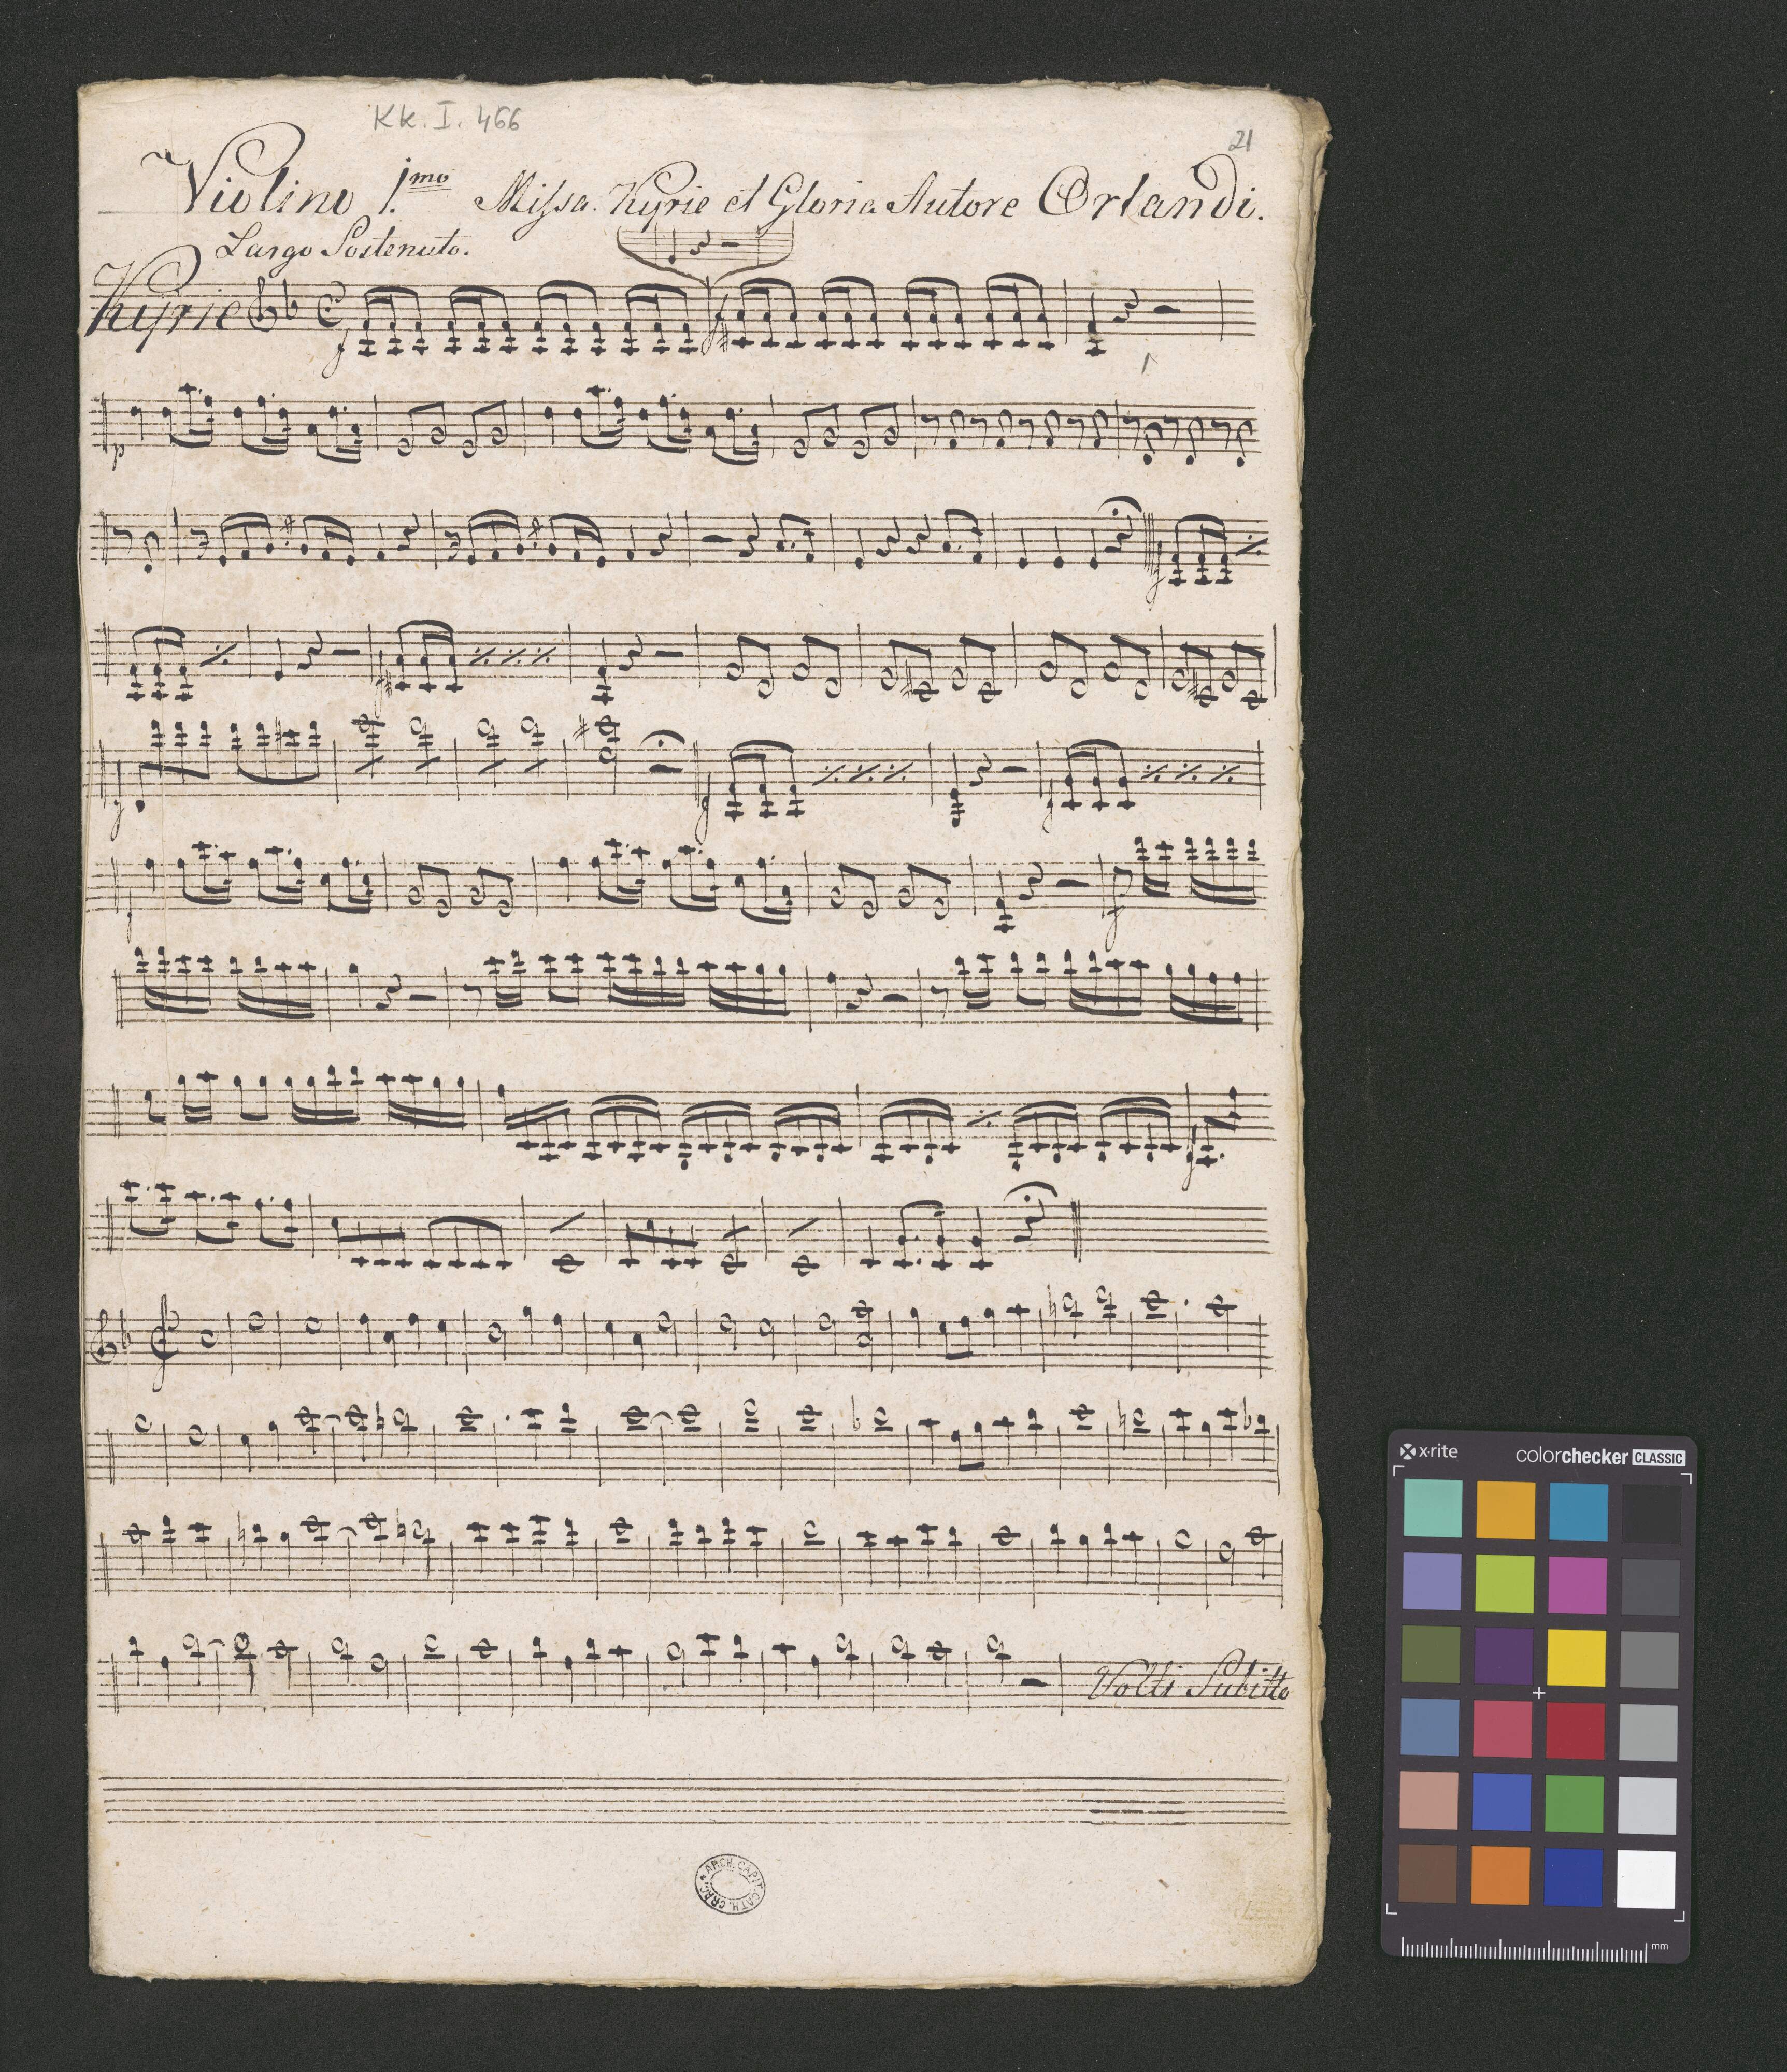 Kk. I. 466
21
Violino 1.mo Missa. Kyrie et Gloria Autore Orlandi.
Largo Sostenuto.
Kyrie
f
p
Volti Subitto
ARCH. CAPIT. CATH. CRAC.
x-rite
colorchecker CLASSIC
mm